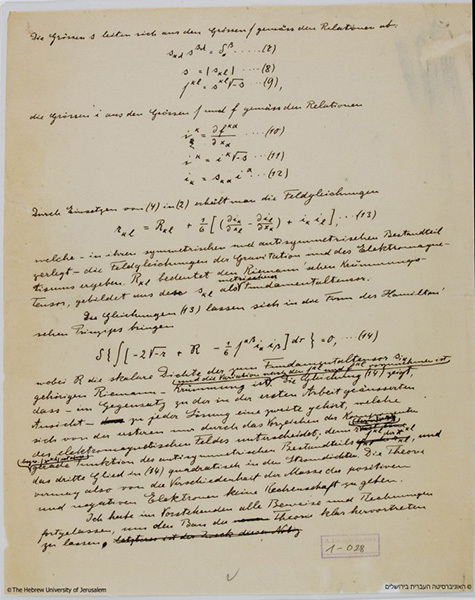 Die Grössen s leiten sich aus den Grössen f gemäss den Relationen ab
s_{αα} s^{βα} = δ_α^β ..... (7)
s = |s_{κl}| ..... (8)
f^{κl} = s^{κl} √-s ... (9),
die Grössen i aus den Grössen f und f gemäss den Relationen
i^κ = ∂f^{κα}/∂x_α ... (10)
i^κ = i^κ √-s ... (11)
i_κ = s_{κα} i^α ... (12)
Durch Einsetzen von (4) in (2) erhält man die Feldgleichungen
r_{κl} = R_{κl} + 1/6 [(∂i_κ/∂x_l - ∂i_l/∂x_κ) + i_κ i_l], ... (13)
welche - in ihren symmetrischen und antisymmetrischen Bestandteil
zerlegt - die Feldgleichungen der Gravitation und des Elektromagne-
tismus ergeben. R_{κl} bedeutet den Riemann'schen Krümmungs-
tensor, gebildet aus den s_{κl} als metrischen Fundamentaltensor.
Die Gleichungen (13) lassen sich in die Form des Hamilton'
schen Prinzips bringen
δ{∫[-2√-r + R - 1/6 f^{αβ} i_α i_β] dτ} = 0, ... (14)
wobei R die skalare Dichte der zum Fundamentaltensor s_{iκ}
gehörigen Riemann-Krümmung ist und die Variation nach den f^{κl} und f^{κl} vorzunehmen ist. Die Gleichung (14) zeigt,
dass - im Gegensatz zu der in der ersten Arbeit geäusserten
Ansicht - zu jeder Lösung eine zweite gehört, welche
sich von der ersten nur durch das Vorzeichen des
des elektromagnetischen Feldes unterscheidet, denn
Funktion des antisymmetrischen Bestandteils, und
das dritte Glied in (14) quadratisch in den Stromdichten. Die Theorie
vermag also von der Verschiedenheit der Masse der positiven
und negativen Elektronen keine Rechenschaft zu geben.
Ich habe im Vorstehenden alle Beweise und Rechnungen
fortgelassen, um den Bau der Theorie klar hervortreten
zu lassen,
1-028
©The Hebrew University of Jerusalem
© האוניברסיטה העברית בירושלים